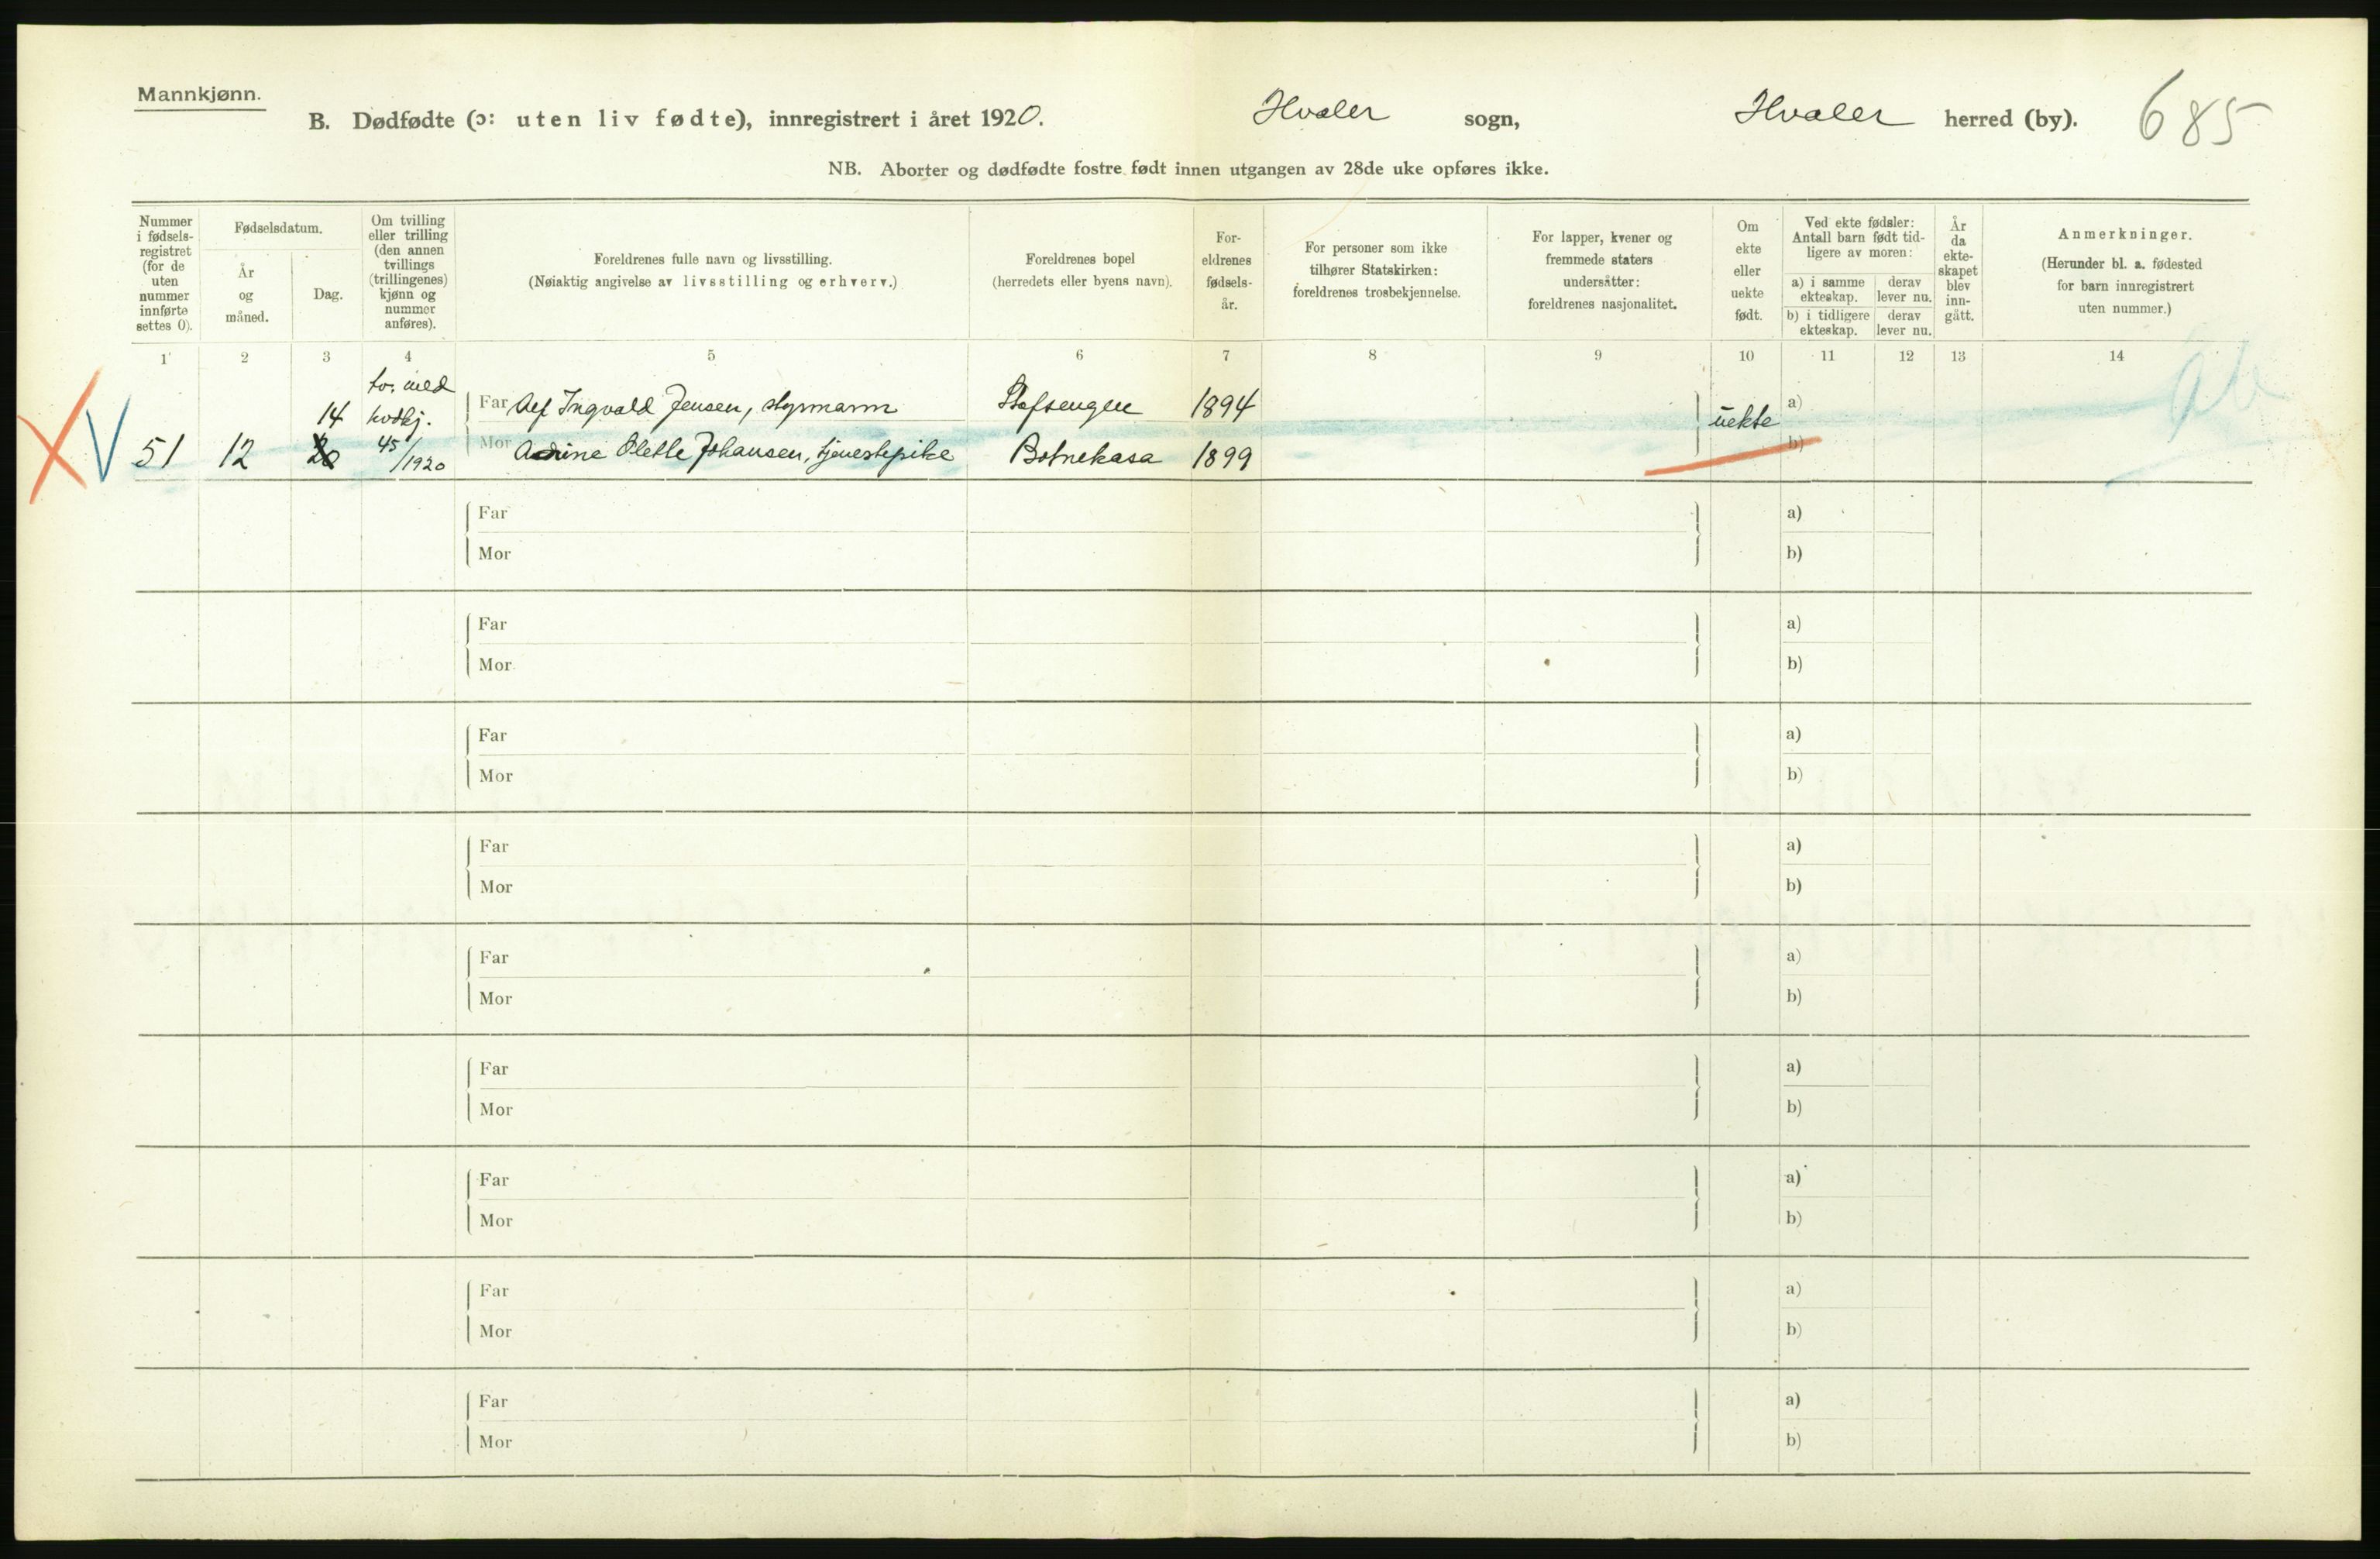 Mannkjønn.
B. Dødfødte (ɔ: uten liv fødte), innregistrert i året 1920. Hvaler sogn, Hvaler herred (by). 685
NB. Aborter og dødfødte fostre født innen utgangen av 28de uke opføres ikke.
Nummer i fødsels-registret (for de uten nummer innførte settes 0).
Fødselsdatum.
År og måned.
Dag.
Om tvilling eller trilling (den annen tvillings (trillingenes) kjønn og nummer anføres).
Foreldrenes fulle navn og livsstilling.
(Nøiaktig angivelse av livsstilling og erhverv.)
Foreldrenes bopel
(herredets eller byens navn).
For-eldrenes fødsels-år.
For personer som ikke tilhører Statskirken: foreldrenes trosbekjennelse.
For lapper, kvener og fremmede staters undersåtter: foreldrenes nasjonalitet.
Om ekte eller uekte født.
Ved ekte fødsler: Antall barn født tid-ligere av moren:
a) i samme ekteskap. derav lever nu.
b) i tidligere ekteskap. derav lever nu.
År da ekte-skapet blev inn-gått.
Anmerkninger.
(Herunder bl. a. fødested for barn innregistrert uten nummer.)
1 2 3 4 5 6 7 8 9 10 11 12 13 14
tv. med
14 kvdkj. Far Alf Ingvald Jensen, styrmann 1894 uekte a)
51 12 20 45/1920 Mor Adrine Olette Johansen, tjenestepike Botnekasa 1899 b)
Far a)
Mor b)
Far a)
Mor b)
Far a)
Mor b)
Far a)
Mor b)
Far a)
Mor b)
Far a)
Mor b)
Far a)
Mor b)
Far a)
Mor b)
Far a)
Mor b)